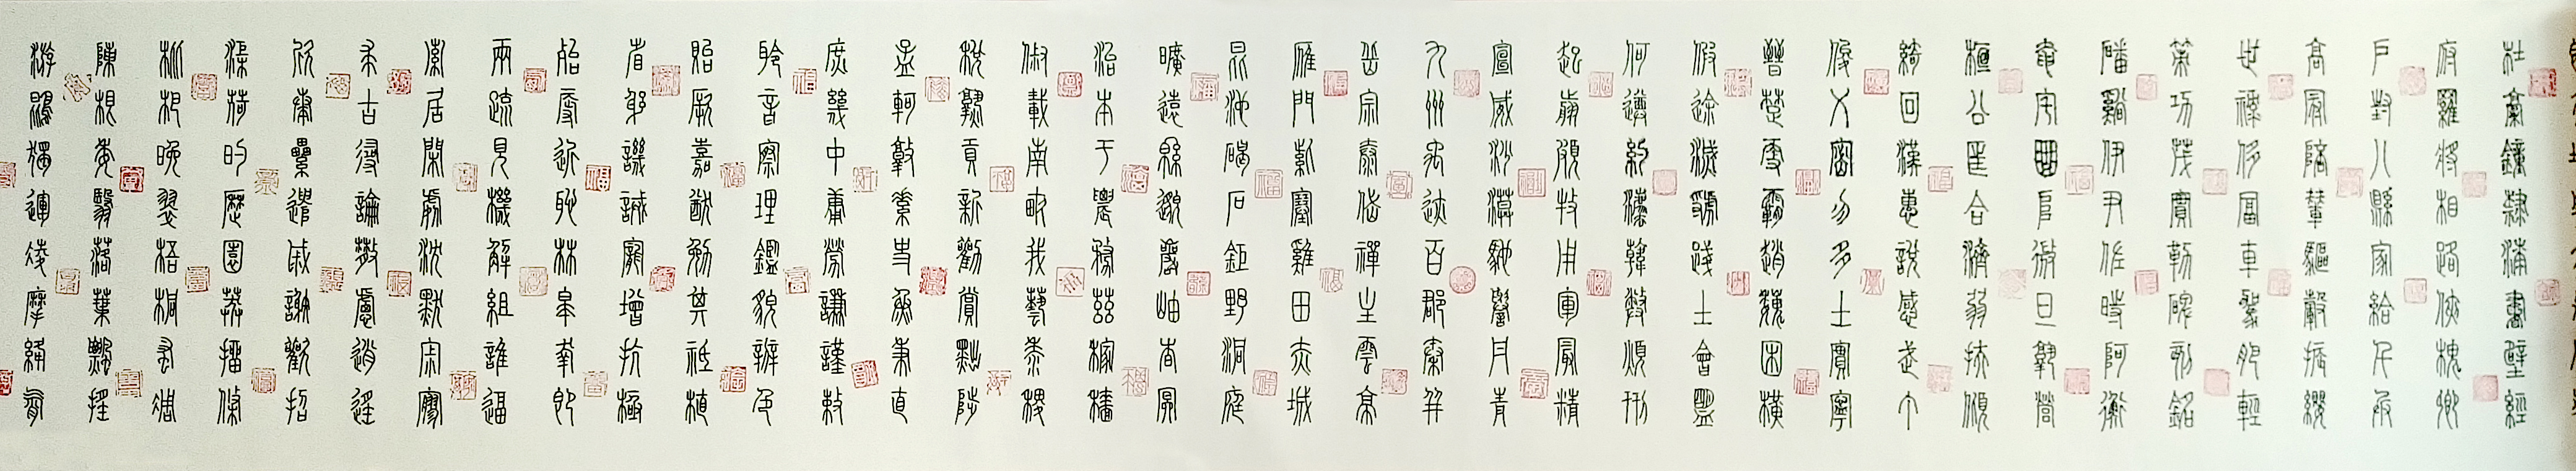 杜稾鍾隸漆書壁經
府羅將相路俠槐卿
戶封八縣家給千兵
高冠陪輦驅轂振纓
世祿侈富車駕肥輕
策功茂實勒碑刻銘
磻谿伊尹佐時阿衡
奄宅曲阜微旦孰營
桓公匡合濟弱扶傾
綺回漢惠說感武丁
俊乂密勿多士實寧
晉楚更霸趙魏困橫
假途滅虢踐土會盟
何遵約法韓弊煩刑
起翦頗牧用軍最精
宣威沙漠馳譽丹青
九州禹跡百郡秦并
嶽宗泰岱禪主雲亭
雁門紫塞雞田赤城
昆池碣石鉅野洞庭
曠遠緜邈巖岫杳冥
治本于農務茲稼穡
俶載南畝我藝黍稷
稅熟貢新勸賞黜陟
孟軻敦素史魚秉直
庶幾中庸勞謙謹敕
聆音察理鑑貌辨色
貽厥嘉猷勉其祗植
省躬譏誡寵增抗極
殆辱近恥林皋幸即
兩疏見機解組誰逼
索居閑處沈默寂寥
求古尋論散慮逍遙
欣奏累遣慼謝歡招
渠荷的歷園莽抽條
枇杷晚翠梧桐蚤凋
陳根委翳落葉飄搖
游鵾獨運凌摩絳霄